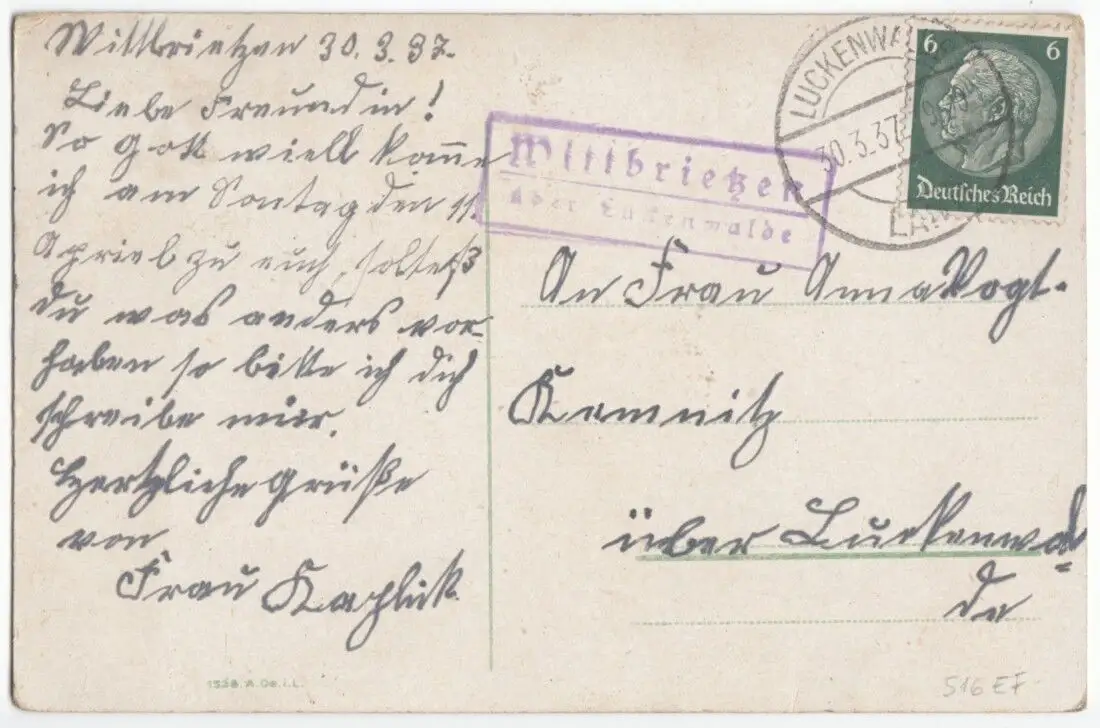 Wittbrietzen 30.3.37.
Liebe Freundin!
So Gott wiell kome
ich am Sontag den 11.
Aprieb zu euch, solteß
du was anders vor-
haben so bitte ich dich
schreibe mier.
Hertzliche Grüße
von
Frau Kaplick
1528. A. Oe. i. L.
Wittbrietzen
über Luckenwalde
LUCKENWALDE
30.3.37
LAND
6 6
Deutsches Reich
An Frau Anna Vogt.
Kemnitz
über Luckenwal=
de
516 EF